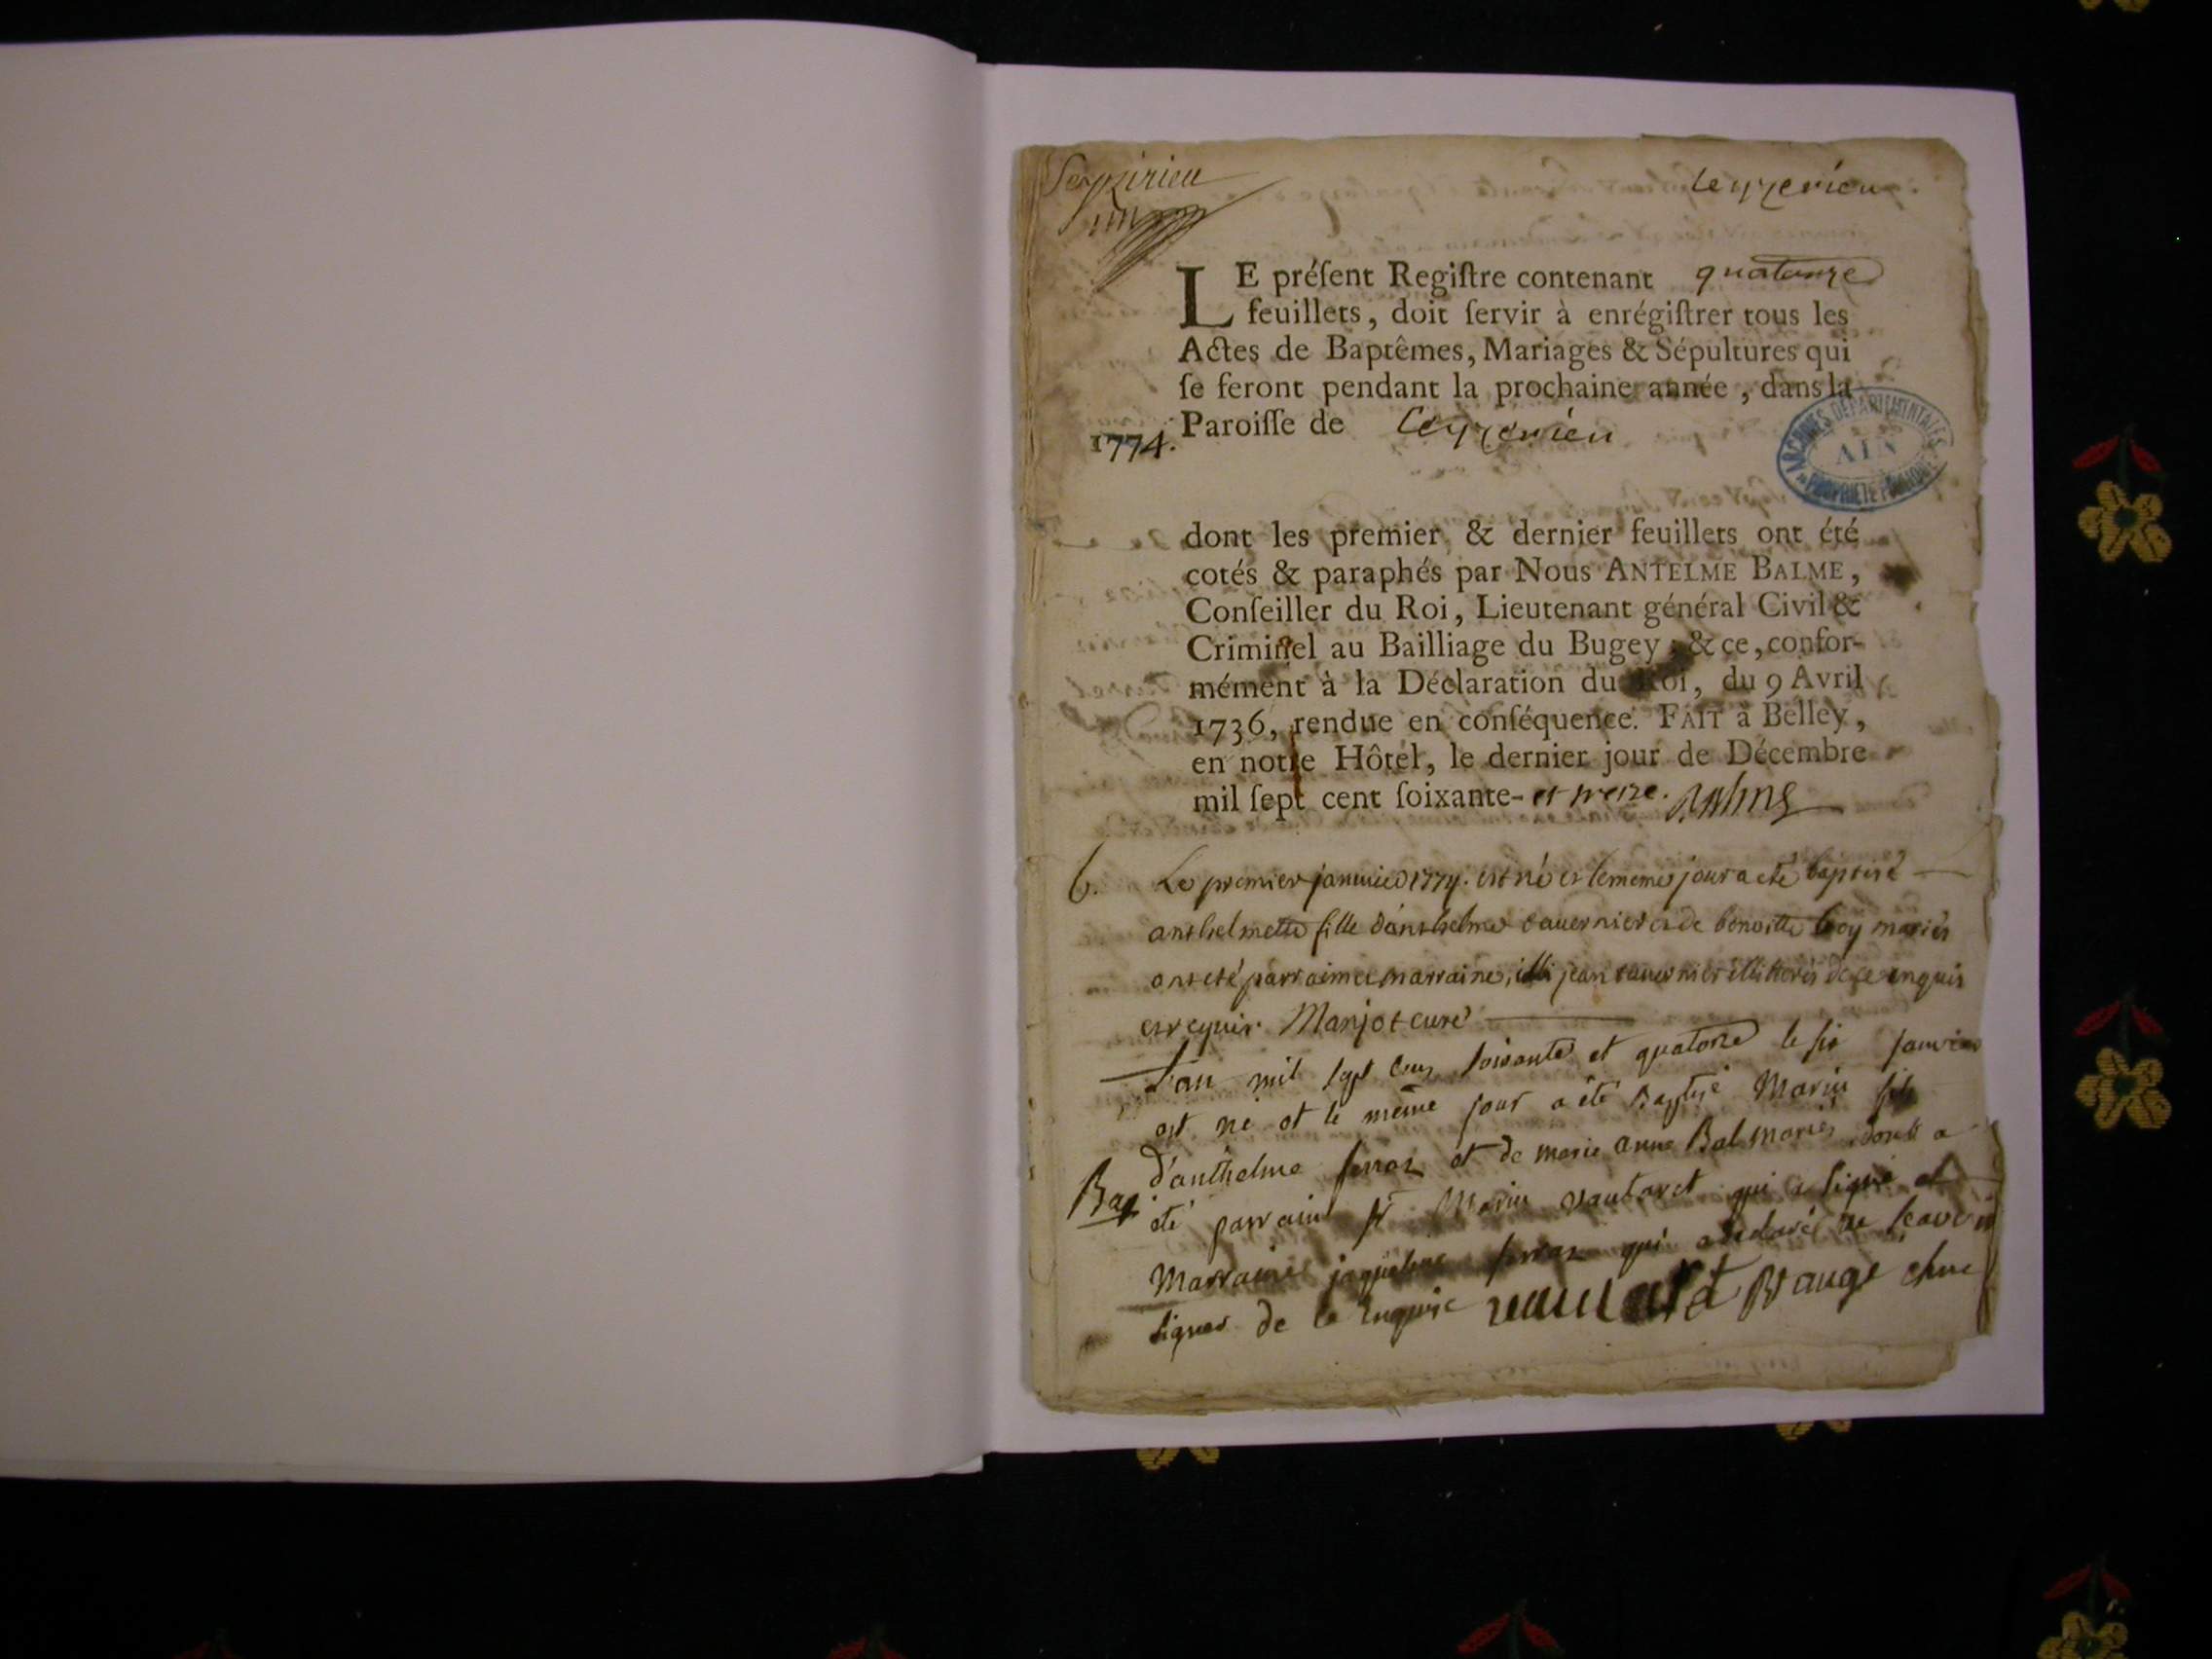 Seyzirieu
Ceyzerieu
LE préſent Regiſtre contenant quatorze
feuillets, doit ſervir à enrégiſtrer tous les
Actes de Baptêmes, Mariages & Sépultures qui
ſe feront pendant la prochaine année, dans la
1774. Paroiſſe de Ceyzerieu
ARCHIVES DÉPARTEMENTALES
AIN
PROPRIÉTÉ PUBLIQUE
dont les premier & dernier feuillets ont été
cotés & paraphés par Nous ANTELME BALME,
Conſeiller du Roi, Lieutenant général Civil &
Criminel au Bailliage du Bugey; & ce, confor-
mément à la Déclaration du Roi, du 9 Avril
1736, rendue en conſéquence. FAIT à Belley,
en notre Hôtel, le dernier jour de Décembre
mil ſept cent ſoixante- et treize. Balme
b. Le premier janvier 1774. est né et le meme jour a eté baptisé
anthelmette fille d'anthelme tavernier et de benoitte mariés
ont eté parrain et marraine, jean tavernier illitterés de ce enquis
et requis. Marjot curé
L'an mil sept cens soixante et quatorze le six janvier
est né et le même jour a été Baptisé Marin fils
d'anthelme ferraz et de marie anne Bal mariés dont a
Bap. été parrain sr Marin vautaret qui a signé et
Marraine jaqueline ferraz qui a declaré ne sçavoir
signer de ce enquise vautaret Brauge